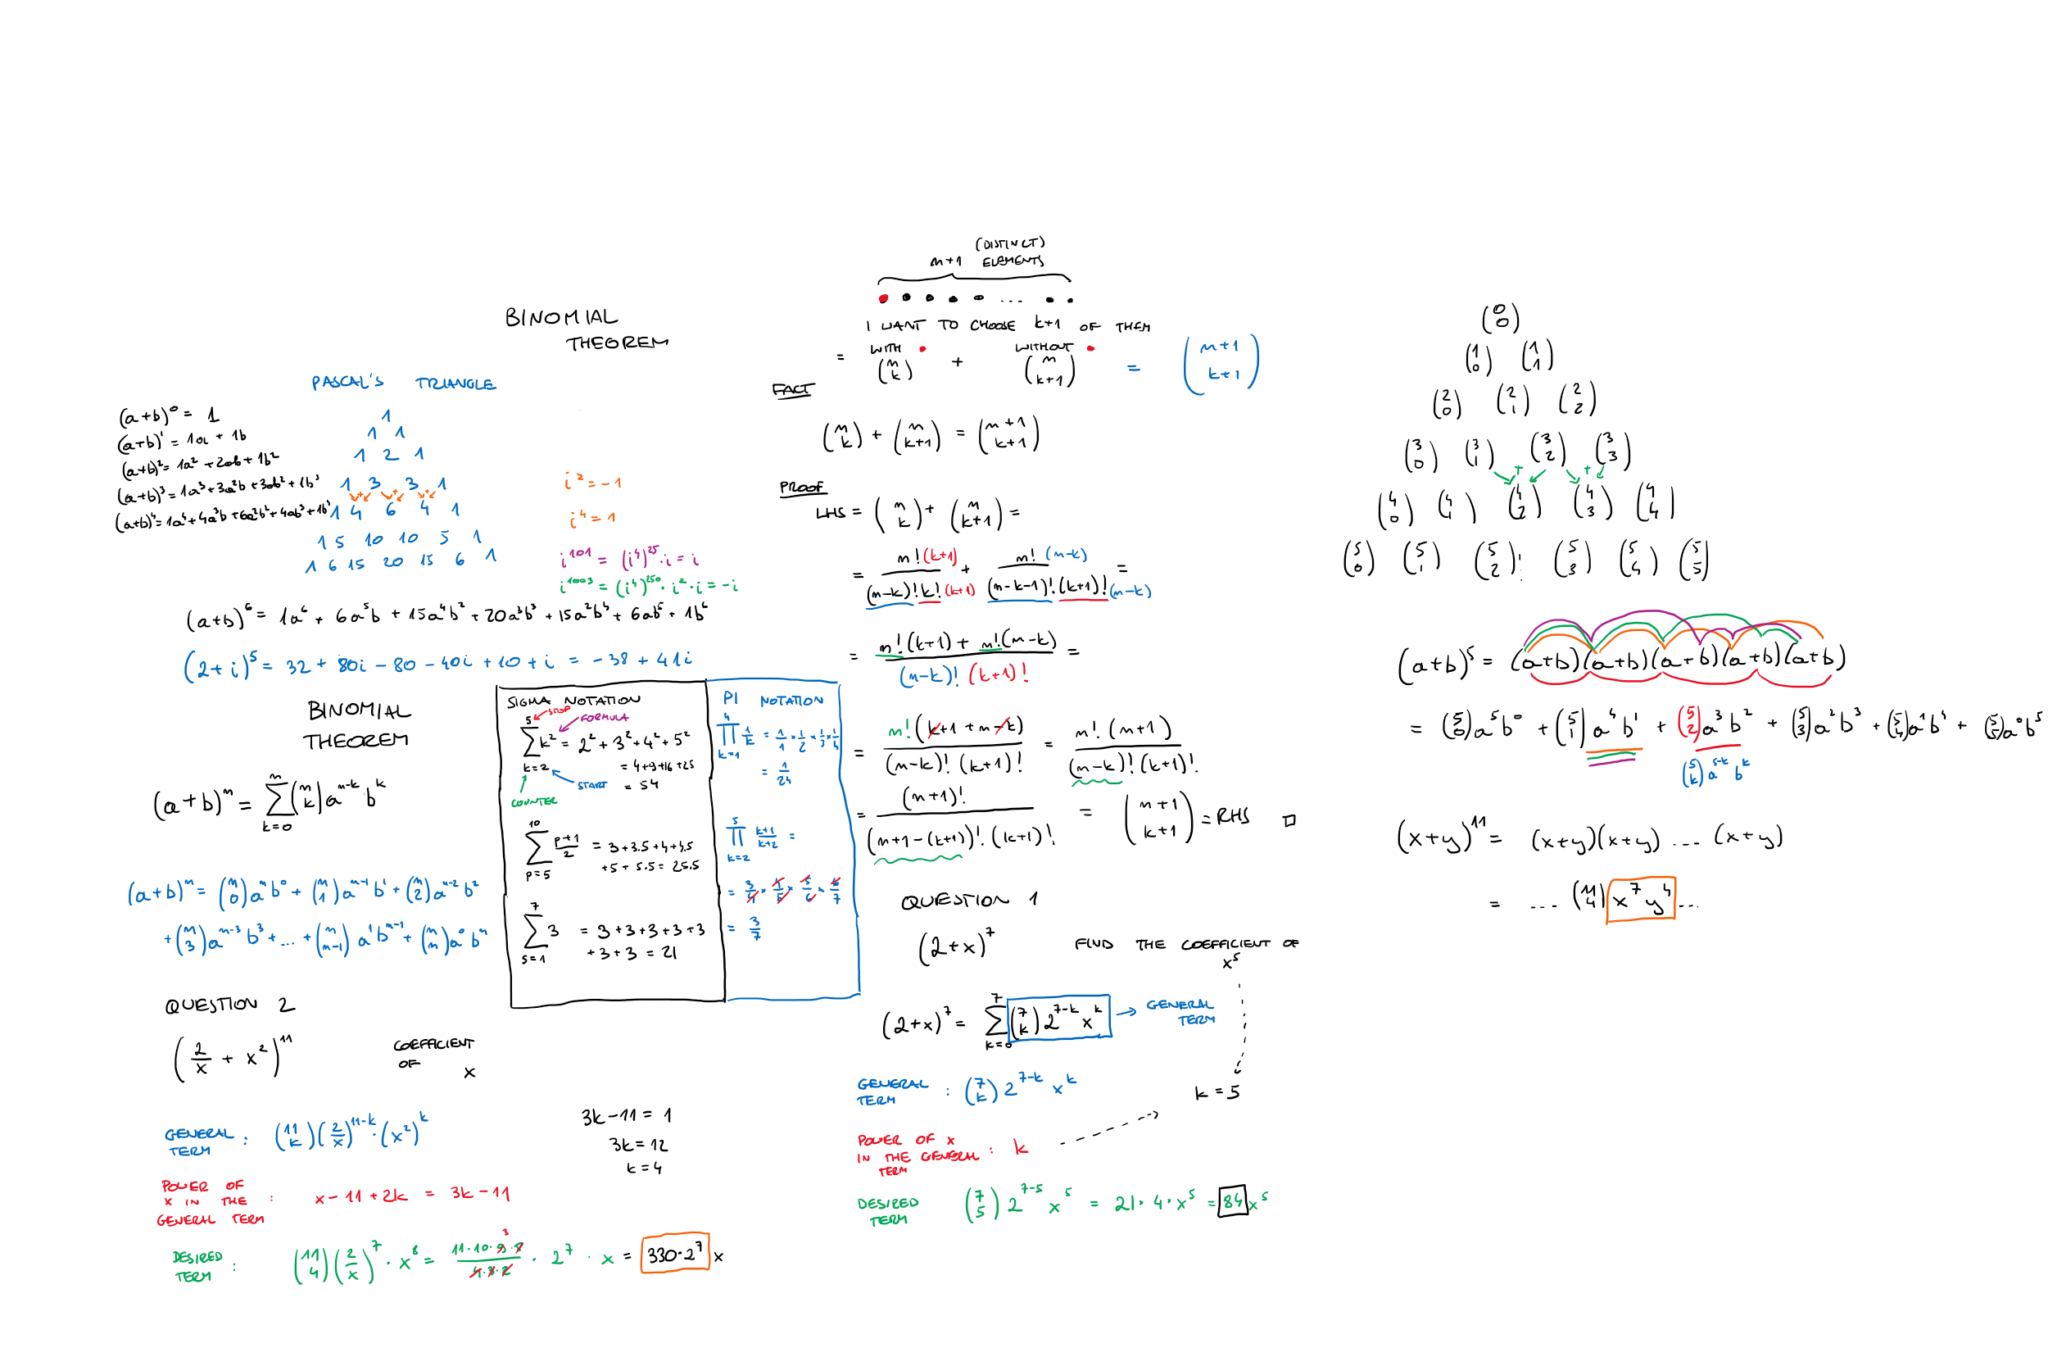 BINOMIAL
THEOREM
PASCAL'S TRIANGLE
(a+b)⁰ = 1
(a+b)¹ = 1a + 1b
(a+b)² = 1a² + 2ab + 1b²
(a+b)³ = 1a³ + 3a²b + 3ab² + 1b³
(a+b)⁴ = 1a⁴ + 4a³b + 6a²b² + 4ab³ + 1b⁴
1
1 1
1 2 1
1 3 3 1
1 4 6 4 1
1 5 10 10 5 1
1 6 15 20 15 6 1
i² = -1
i⁴ = 1
i¹⁰¹ = (i⁴)²⁵ · i = i
i¹⁰⁰³ = (i⁴)²⁵⁰ · i² · i = -i
(a+b)⁶ = 1a⁶ + 6a⁵b + 15a⁴b² + 20a³b³ + 15a²b⁴ + 6ab⁵ + 1b⁶
(2+i)⁵ = 32 + 80i - 80 - 40i + 10 + i = -38 + 41i
BINOMIAL
THEOREM
(a+b)ⁿ = Σ_{k=0}^{n} (n k) a^{n-k} b^k
(a+b)ⁿ = (n 0) aⁿb⁰ + (n 1) a^{n-1}b¹ + (n 2) a^{n-2}b²
+ (n 3) a^{n-3}b³ + ... + (n n-1) a¹b^{n-1} + (n n) a⁰bⁿ
SIGMA NOTATION
STOP
FORMULA
Σ_{k=2}^{5} k² = 2² + 3² + 4² + 5²
= 4+9+16+25
START = 54
COUNTER
Σ_{p=5}^{10} (p+1)/2 = 3+3.5+4+4.5
+5+5.5 = 25.5
Σ_{s=1}^{7} 3 = 3+3+3+3+3
+3+3 = 21
PI NOTATION
∏_{k=1}^{4} 1/k = 1/1 × 1/2 × 1/3 × 1/4
= 1/24
∏_{k=2}^{5} (k+1)/(k+2) =
= 3/4 × 4/5 × 5/6 × 6/7
= 3/7
QUESTION 2
(2/x + x²)¹¹
COEFFICIENT
OF x
GENERAL
TERM : (11 k) (2/x)^{11-k} · (x²)^k
3k-11 = 1
3k = 12
k = 4
POWER OF
x IN THE : x-11+2k = 3k-11
GENERAL TERM
DESIRED
TERM : (11 4) (2/x)⁷ · x⁸ = (11·10·9·8)/(4·3·2) · 2⁷ · x = 330·2⁷ x
3
(DISTINCT)
n+1 ELEMENTS
...
I WANT TO CHOOSE k+1 OF THEM
WITH WITHOUT
= (n k) + (n k+1) = (n+1 k+1)
FACT
(n k) + (n k+1) = (n+1 k+1)
PROOF
LHS = (n k) + (n k+1) =
= n!(k+1)/((n-k)!k!(k+1)) + n!(n-k)/((n-k-1)!·(k+1)!(n-k)) =
= (n!(k+1) + n!(n-k))/((n-k)!(k+1)!) =
= n!(k+1+n-k)/((n-k)!(k+1)!) = n!(n+1)/((n-k)!(k+1)!)
= (n+1)!/((n+1-(k+1))!·(k+1)!) = (n+1 k+1) = RHS □
QUESTION 1
(2+x)⁷ FIND THE COEFFICIENT OF
x⁵
(2+x)⁷ = Σ_{k=0}^{7} (7 k) 2^{7-k} x^k → GENERAL
TERM
GENERAL
TERM : (7 k) 2^{7-k} x^k
k = 5
POWER OF x
IN THE GENERAL : k
TERM
DESIRED
TERM (7 5) 2^{7-5} x⁵ = 21·4·x⁵ = 84 x⁵
(0 0)
(1 0) (1 1)
(2 0) (2 1) (2 2)
(3 0) (3 1) (3 2) (3 3)
+ +
(4 0) (4 1) (4 2) (4 3) (4 4)
(5 0) (5 1) (5 2) (5 3) (5 4) (5 5)
(a+b)⁵ = (a+b)(a+b)(a+b)(a+b)(a+b)
= (5 0) a⁵b⁰ + (5 1) a⁴b¹ + (5 2) a³b² + (5 3) a²b³ + (5 4) a¹b⁴ + (5 5) a⁰b⁵
(5 k) a^{5-k} b^k
(x+y)¹¹ = (x+y)(x+y) ... (x+y)
= ... (11 4) x⁷y⁴ ...